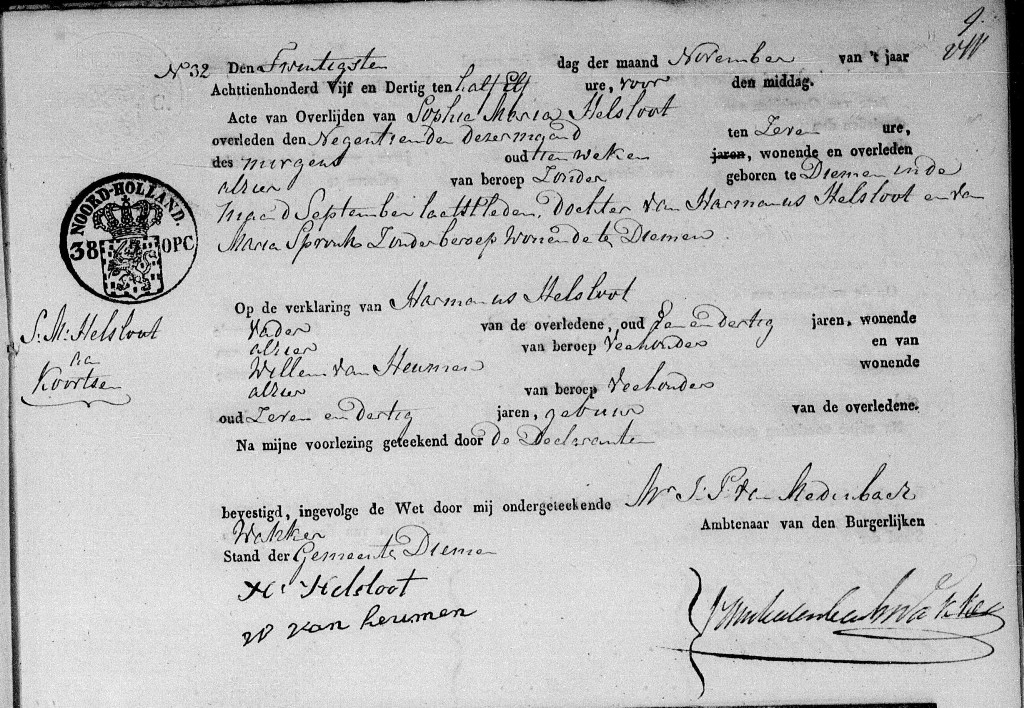 9.
VIII
No 32 Den Twintigsten dag der maand November van 't jaar
Achttienhonderd Vijf en Dertig ten half Elf ure, voor den middag.
Acte van Overlijden van Sophia Maria Helsloot
overleden den Negentienden dezer maand ten Zeven ure,
des morgens oud tien weken jaren, wonende en overleden
alhier van beroep Zonder geboren te Diemen in de
maand September laatstleden, Dochter van Harmanus Helsloot en van
Maria Spronk Zonder beroep Wonende te Diemen.
NOORD-HOLLAND.
38 OPC
Op de verklaring van Harmanus Helsloot
Vader van de overledene, oud en dertig jaren, wonende
alhier van beroep Veehouder en van
Willem van Heumen wonende
alhier van beroep Veehouder
oud Zeven en dertig jaren, gebuur van de overledene.
Na mijne voorlezing geteekend door de Declaranten
S. M. Helsloot
Koortsen
bevestigd, ingevolge de Wet door mij ondergeteekende Mr J. P. van Medenbach
Wakker Ambtenaar van den Burgerlijken
Stand der Gemeente Diemen
H. Helsloot
W van heumen